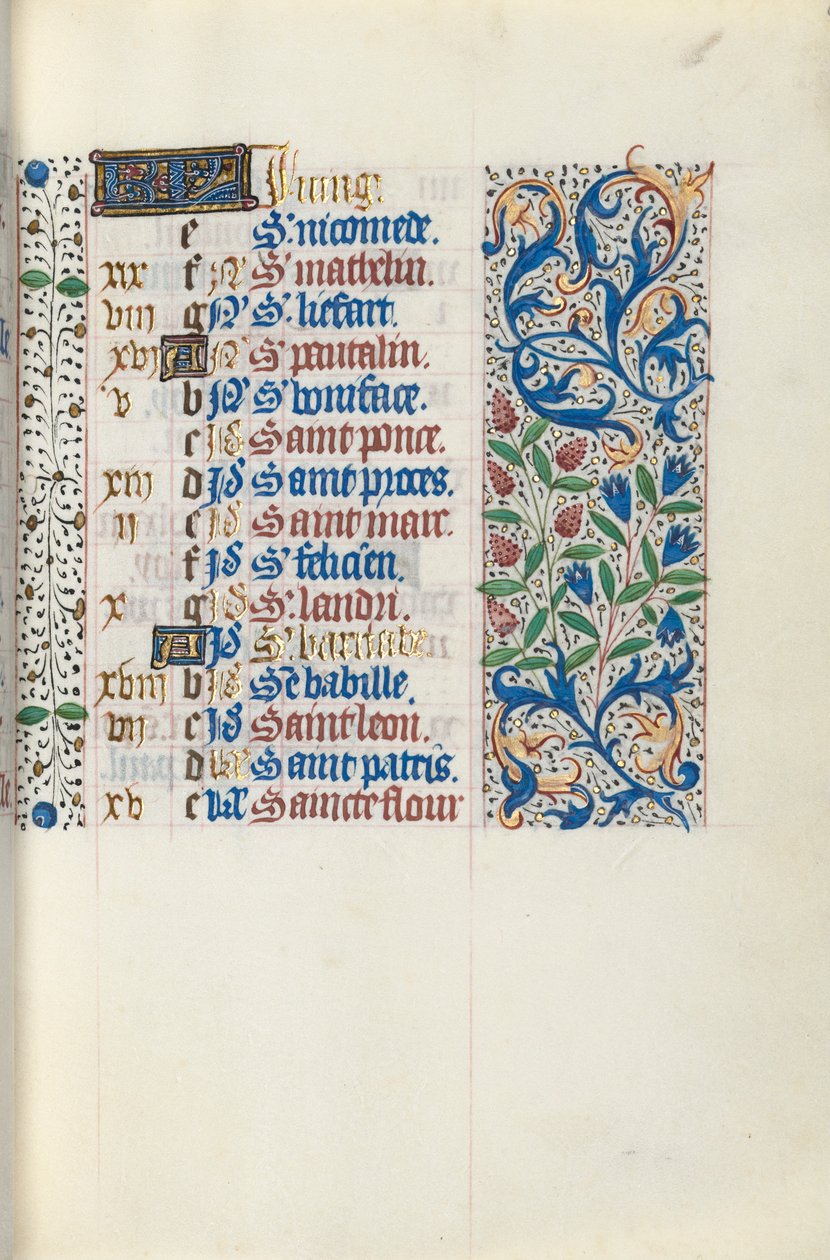 KL Juing.
e S. nicomede.
xix f N S. mathelin.
viii g N S. liefart.
xvi A N S. pantalin.
v b N S. boniface.
c Id Saint ponce.
xiii d Id Saint proces.
ii e Id Saint marc.
f Id S. felicien.
x g Id S. landri.
A Id S. barnabe.
xviii b Id Se babille.
vii c Id Saint leon.
d kl Saint patris.
xv e kl Saincte flour